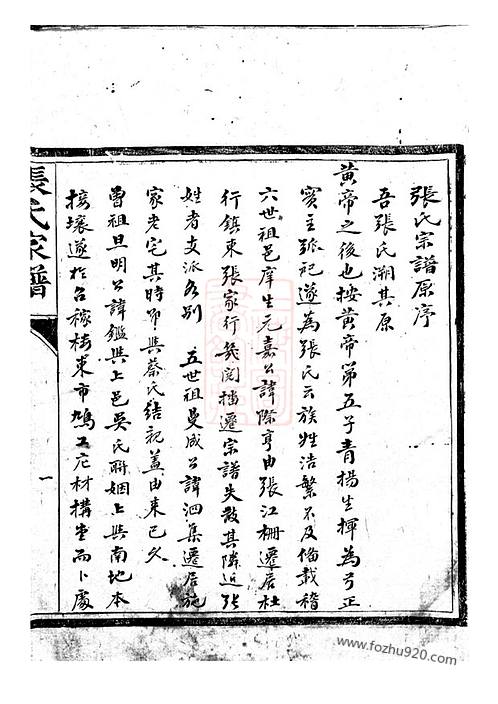 張氏宗譜原序
吾張氏溯其原
黃帝之後也按黃帝第五子青揚生揮為弓正
實主弧祀遂為張氏云族姓浩繁不及俻載稽
六世祖邑庠生元嘉公諱除亨由張江柵遷居杜
行鎮東張家行幾閱播遷宗譜失散其隣近張
姓者支派各別 五世祖曼成公諱泗集遷居施
家老宅其時即與蔡氏結親蓋由来已久
曾祖旦明公諱鑑與上邑吳氏聯姻上與南地本
接壤遂於召稼樓東市鳩工庀材構堂而卜處
張氏宗譜
一
www.fozhu920.com